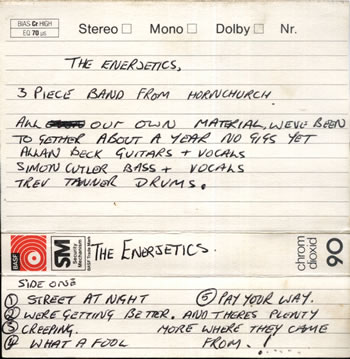 BIAS & HIGH
EQ 70 µs
Stereo Mono Dolby Nr.
THE ENERJETICS,
3 PIECE BAND FROM HORNCHURCH
ALL OUR OWN MATERIAL, WEVE BEEN
TO GETHER ABOUT A YEAR NO GIGS YET
ALLAN BECK GUITARS + VOCALS
SIMON CUTLER BASS + VOCALS
TREV TANNER DRUMS.
BASF
SM
Security
Mechanism
BASF Trade Mark
THE ENERJETICS.
chrom
dioxid
90
SIDE ONE
① STREET AT NIGHT ⑤ PAY YOUR WAY.
② WERE GETTING BETTER. AND THERES PLENTY
③ CREEPING. MORE WHERE THEY CAME
④ WHAT A FOOL FROM. !